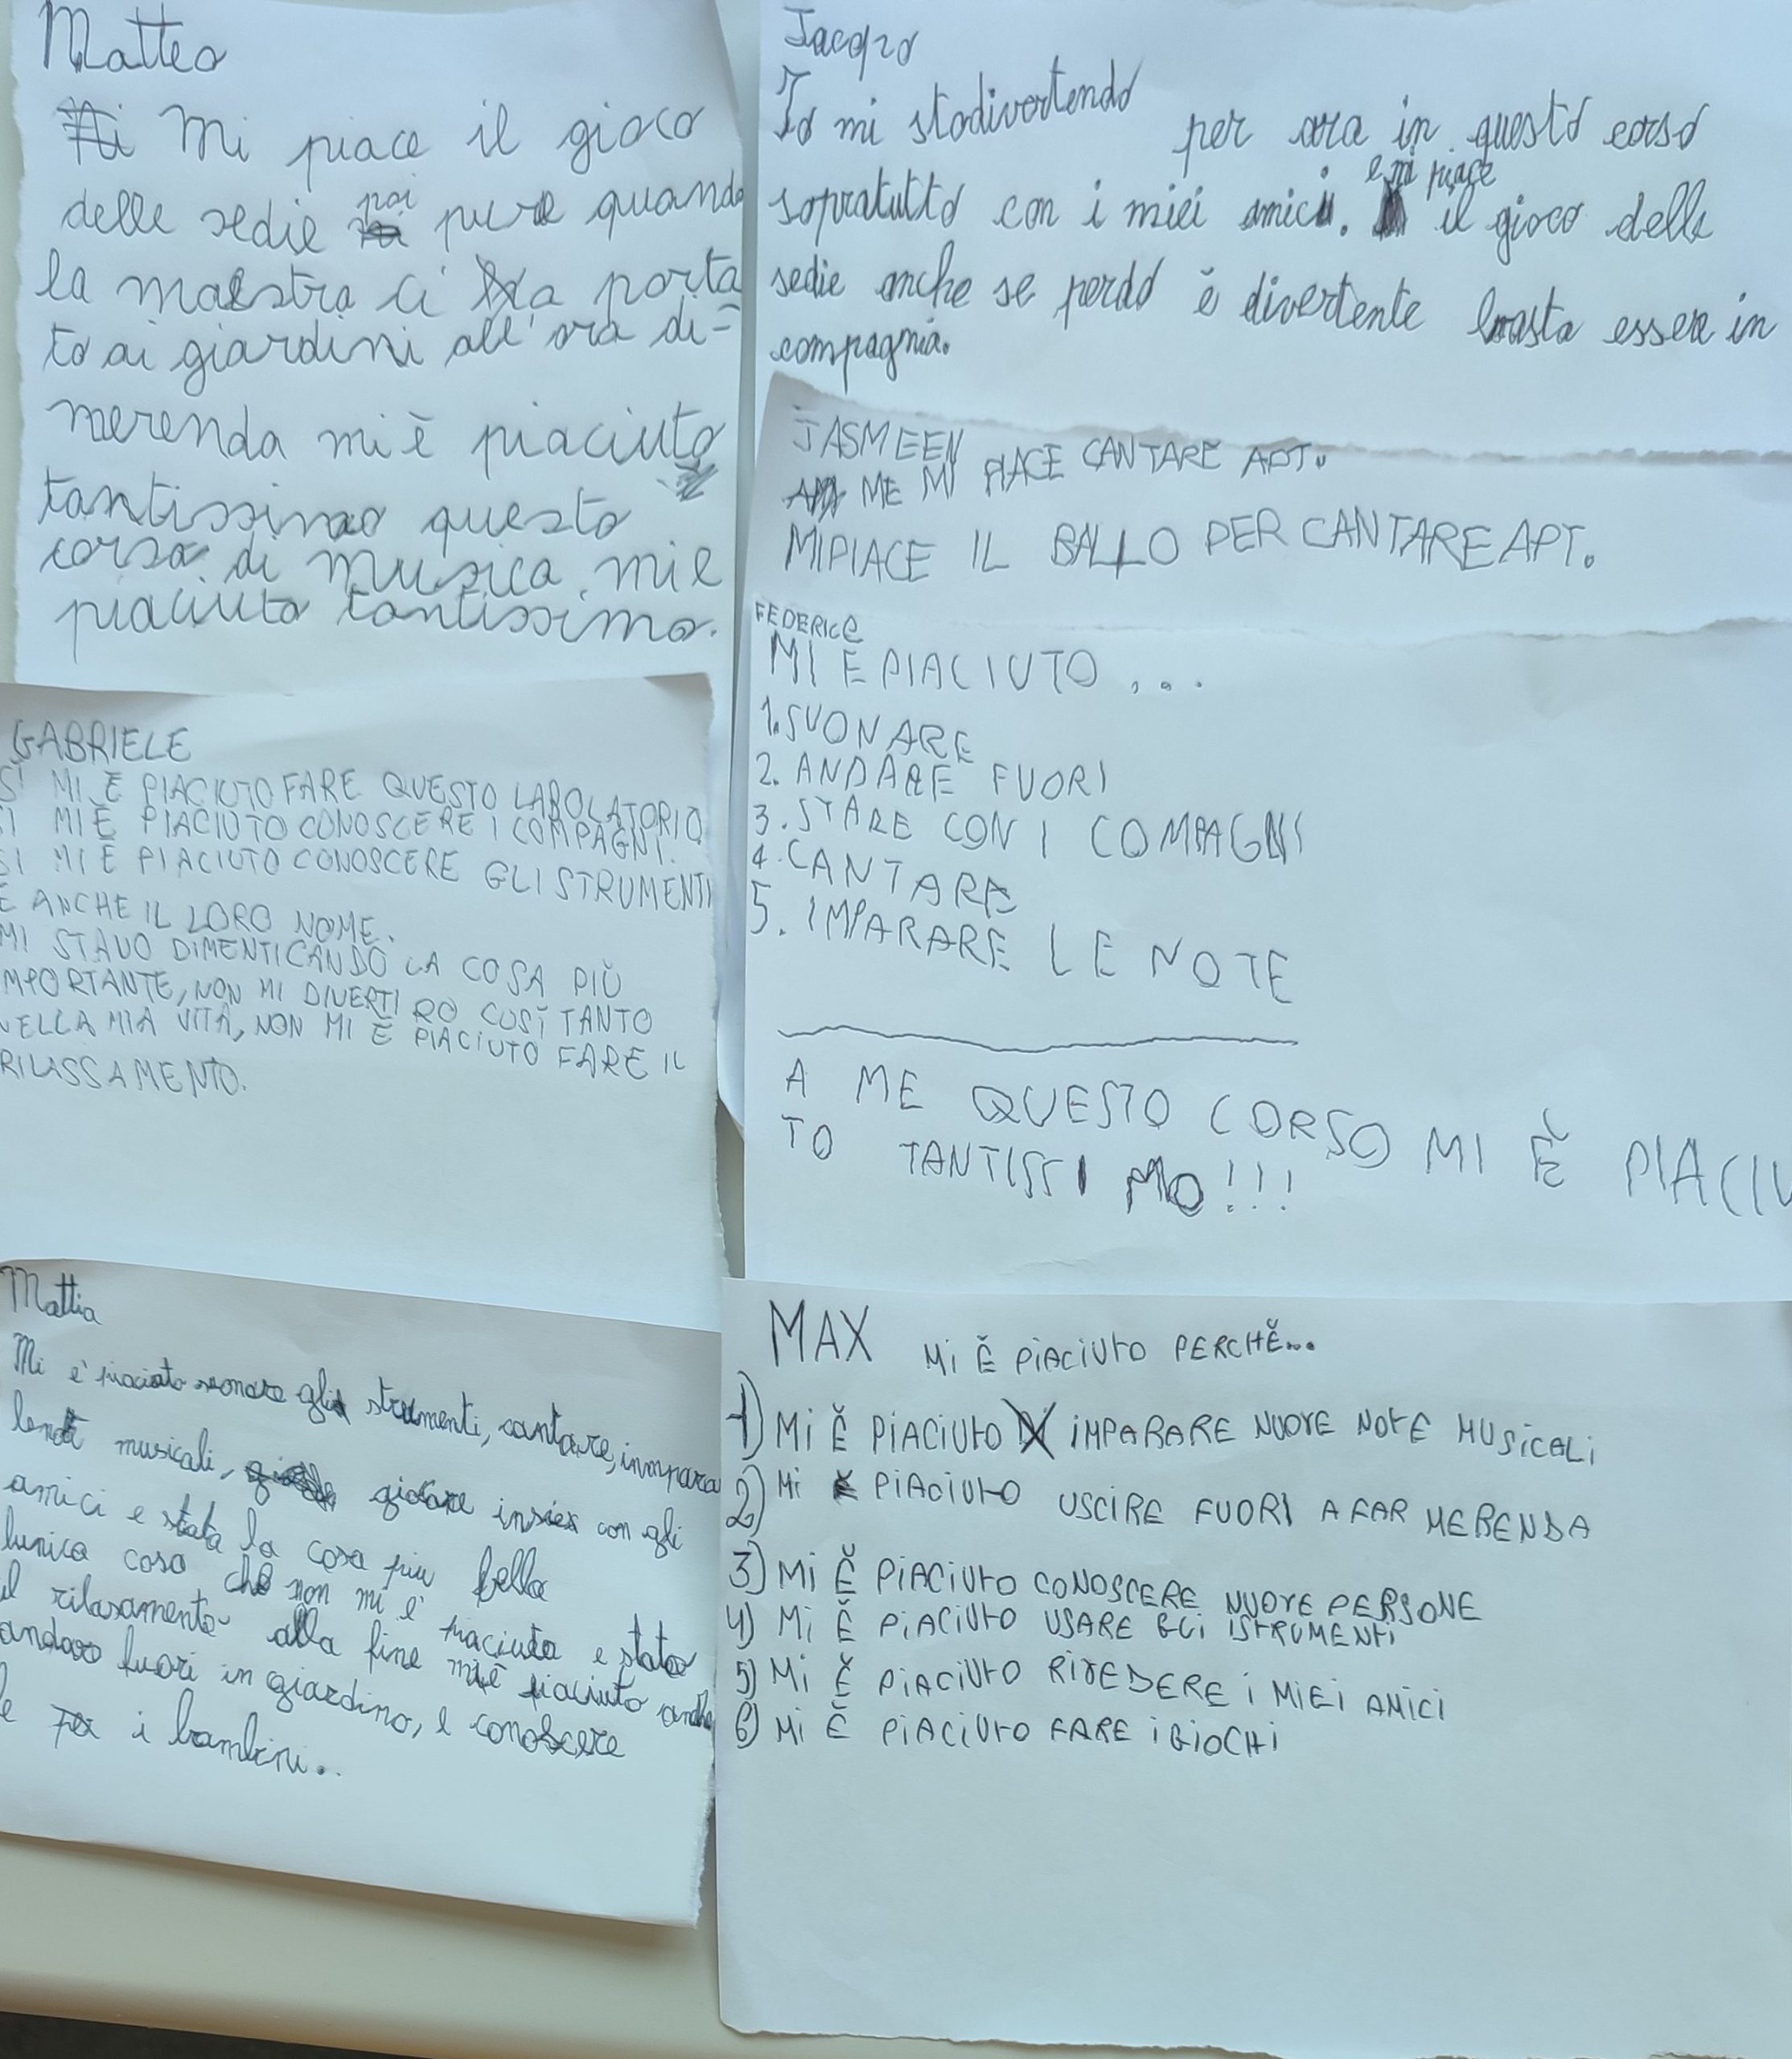 Matteo
Mi piace il gioco
delle sedie poi pure quando
la maestra ci ha porta
to ai giardini all'ora di=
merenda mi è piaciuto
tantissimo questo
corso di musica. mi e
piaciuto tantissimo.
Jacopo
Io mi stodivertendo per ora in questo corso
sopratutto con i miei amici. e mi piace il gioco delle
sedie anche se perdo è divertente basta essere in
compagnia.
JASMEEN
ME MI PIACE CANTARE APT.
MIPIACE IL BALLO PER CANTARE APT.
FEDERICO
MI È PIACIUTO...
1. SUONARE
2. ANDARE FUORI
3. STARE CON I COMPAGNI
4. CANTARE
5. IMPARARE LE NOTE
A ME QUESTO CORSO MI È PIACIU
TO TANTISSIMO!!!
GABRIELE
SÌ MI È PIACIUTO FARE QUESTO LABOLATORIO
SÌ MI È PIACIUTO CONOSCERE I COMPAGNI.
SI MI È PIACIUTO CONOSCERE GLI STRUMENTI
E ANCHE IL LORO NOME.
MI STAVO DIMENTICANDO LA COSA PIÙ
IMPORTANTE, NON MI DIVERTIRÒ COSÌ TANTO
NELLA MIA VITA, NON MI È PIACIUTO FARE IL
RILASSAMENTO.
Mattia
Mi è piaciuto suonare gli strumenti, cantare, immpara
musicali, giocare con gli
amici e stata la cosa piu bella
lunica cosa che non mi è piaciuta e stato
il rilasamento alla fine mi è piaciuto anche
andare fuori in giardino, e conoscere
i bambini..
MAX MI È PIACIUTO PERCHÈ...
1) MI È PIACIUTO IMPARARE NUOVE NOTE MUSICALI
2) MI È PIACIUTO USCIRE FUORI A FAR MERENDA
3) MI È PIACIUTO CONOSCERE NUOVE PERSONE
4) MI È PIACIUTO USARE GLI ISTRUMENTI
5) MI È PIACIUTO RIVEDERE I MIEI AMICI
6) MI È PIACIUTO FARE I GIOCHI